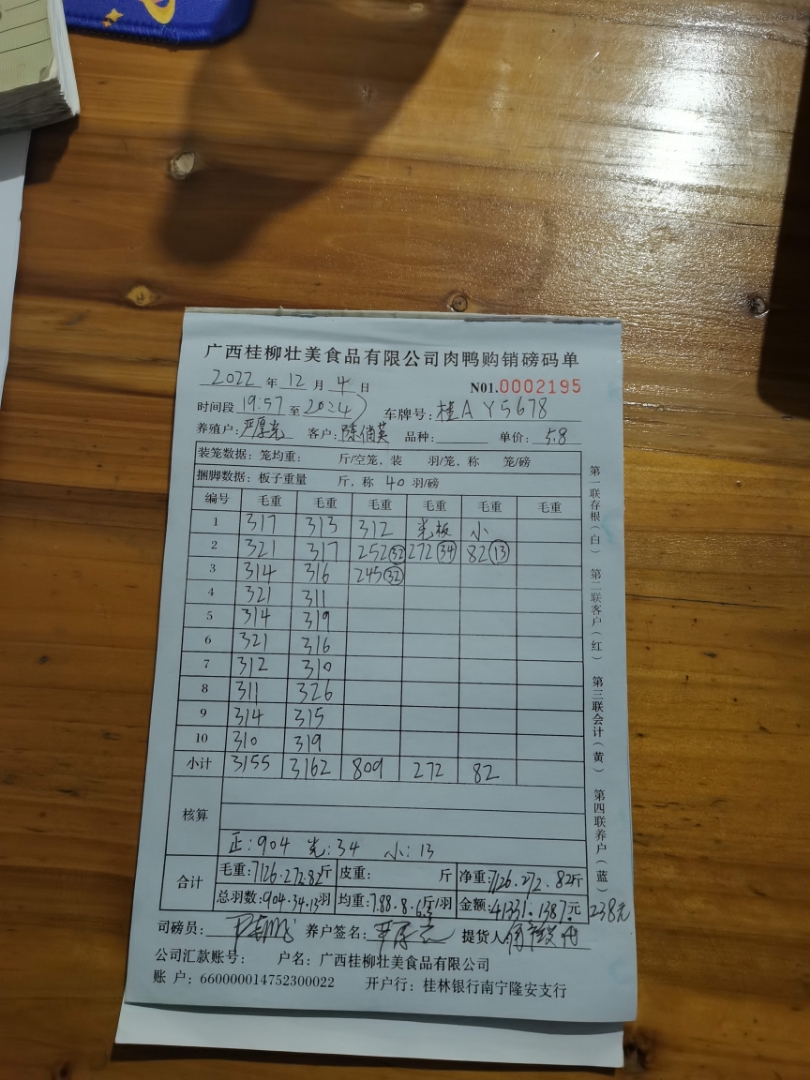 广西桂柳壮美食品有限公司肉鸭购销磅码单
2022 年 12 月 4 日 N01.0002195
时间段 19:57 至 20:24 车牌号: 桂A Y5678
养殖户: 严厚光 客户: 陈俏英 品种: 单价: 5.8
装笼数据: 笼均重: 斤/空笼, 装 羽/笼, 称 笼/磅
捆脚数据: 板子重量 斤, 称 40 羽/磅
编号 毛重 毛重 毛重 毛重 毛重 毛重
1 317 313 312 光板 小
2 321 317 252 32 272 34 82 13
3 314 316 245 32
4 321 311
5 314 319
6 321 316
7 312 310
8 311 326
9 314 315
10 310 319
小计 3155 3162 809 272 82
核算
正: 904 光: 34 小: 13
合计 毛重: 7126.272.82斤 皮重: 斤 净重: 7126.272.82斤
总羽数: 904.34.13羽 均重: 7.88.8.6.3斤/羽 金额: 41331.1387.元 238元
司磅员: 养户签名: 提货人
公司汇款账号: 户名: 广西桂柳壮美食品有限公司
账 户: 660000014752300022 开户行: 桂林银行南宁隆安支行
第一联存根(白) 第二联客户(红) 第三联会计(黄) 第四联养户(蓝)